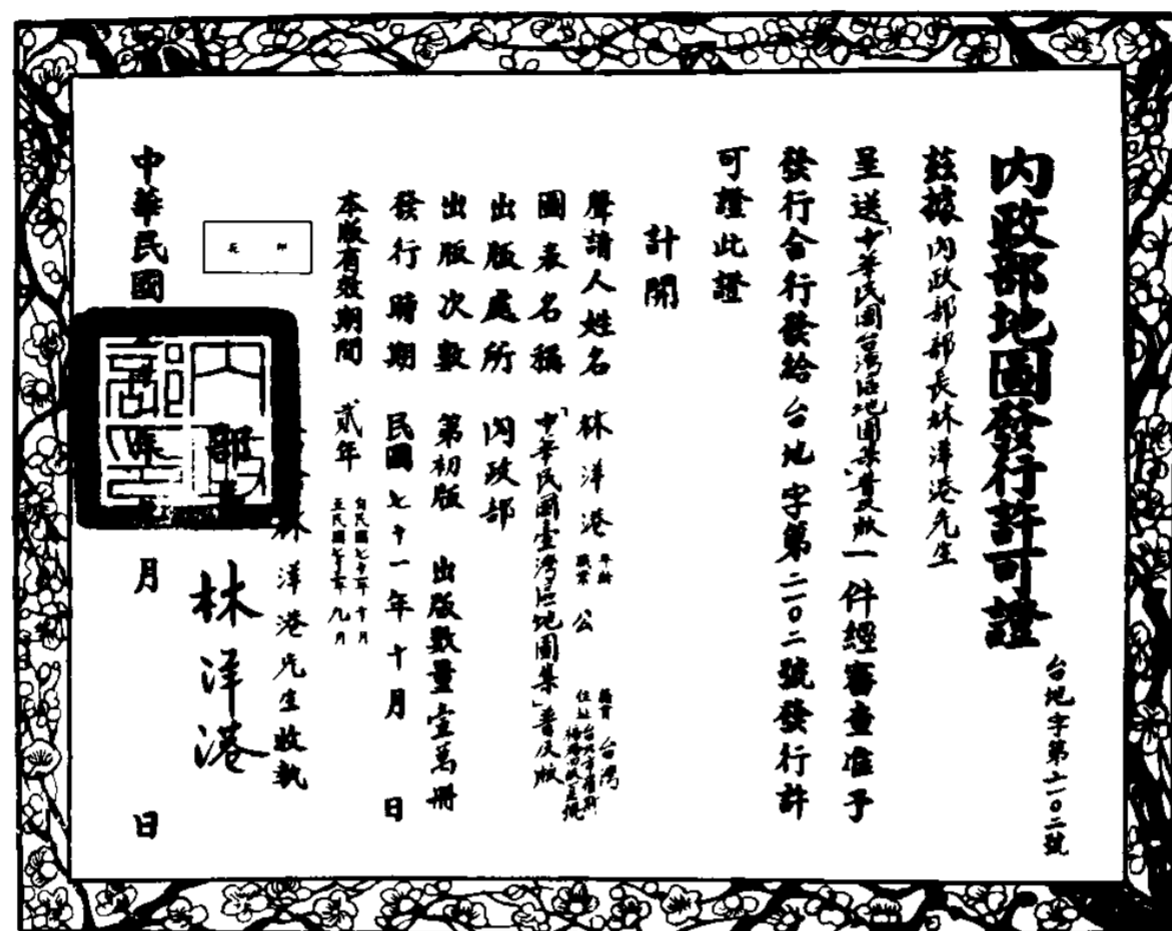 內政部地圖發行許可證
台地字第二一〇二號
茲據內政部部長林洋港先生
呈送「中華民國台灣區地圖集」普及版一件經審查准予
發行合行發給台地字第二一〇二號發行許
可證此證
計開
聲請人姓名 林洋港 年齡 職業 公 籍貫 台灣 住址
圖表名稱 「中華民國臺灣區地圖集」普及版
出版處所 內政部
出版次數 第初版 出版數量壹萬冊
發行時期 民國七十一年十月 日
本版有效期間 貳年 自民國七十一年十月 至民國七十三年九月
印花
林洋港先生收執
部長 林洋港
中華民國 年 月 日